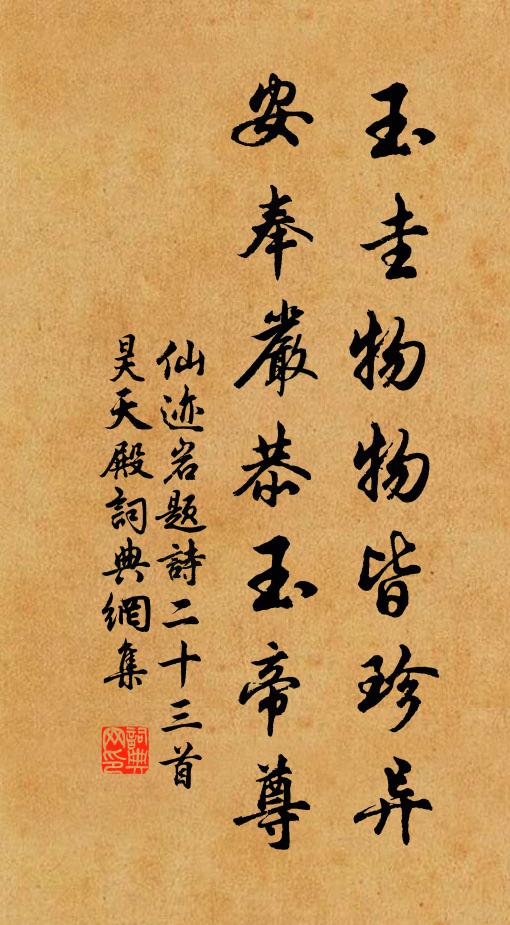 玉圭物物皆珍异
安奉嚴恭玉帝尊
仙迹岩题詩二十三首
昊天殿詞典網集
詞典
网印